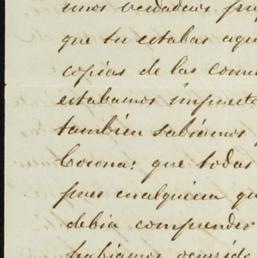 unos verdaderos
que tu estabas aqu
copias de las comu
estabamos impuesto
tambien sabiamos
Corona: que todas
pues cualquiera qu
debia comprender
habiamos ocurrido